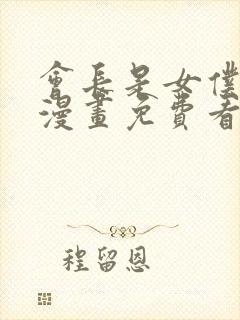 會長是女僕
漫畫免費看
程留恩